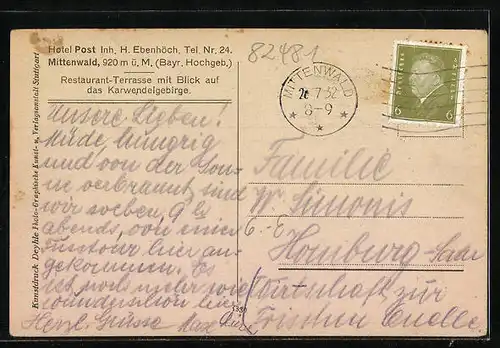 Hotel Post Inh. H. Ebenhöch, Tel. Nr. 24.
Mittenwald, 920 m ü. M. (Bayr. Hochgeb.)
Restaurant-Terrasse mit Blick auf
das Karwendelgebirge.
Kunstdruck Deyhle Photo-Graphische Kunst- u. Verlagsanstalt Stuttgart
82481
MITTENWALD
7.32
8-9
DEUTSCHES REICH
6 6
Unsere Lieben!
Müde, hungrig
und von der Son-
ne verbrannt, sind
wir soeben, 9 Uhr
abends, von einer
Fusstour hier an-
gekommen. Es
ist
hier
Herzl. Grüsse Max
Familie
W. Simonis
Homburg-Saar
Wirtschaft zur
Frischen Quelle